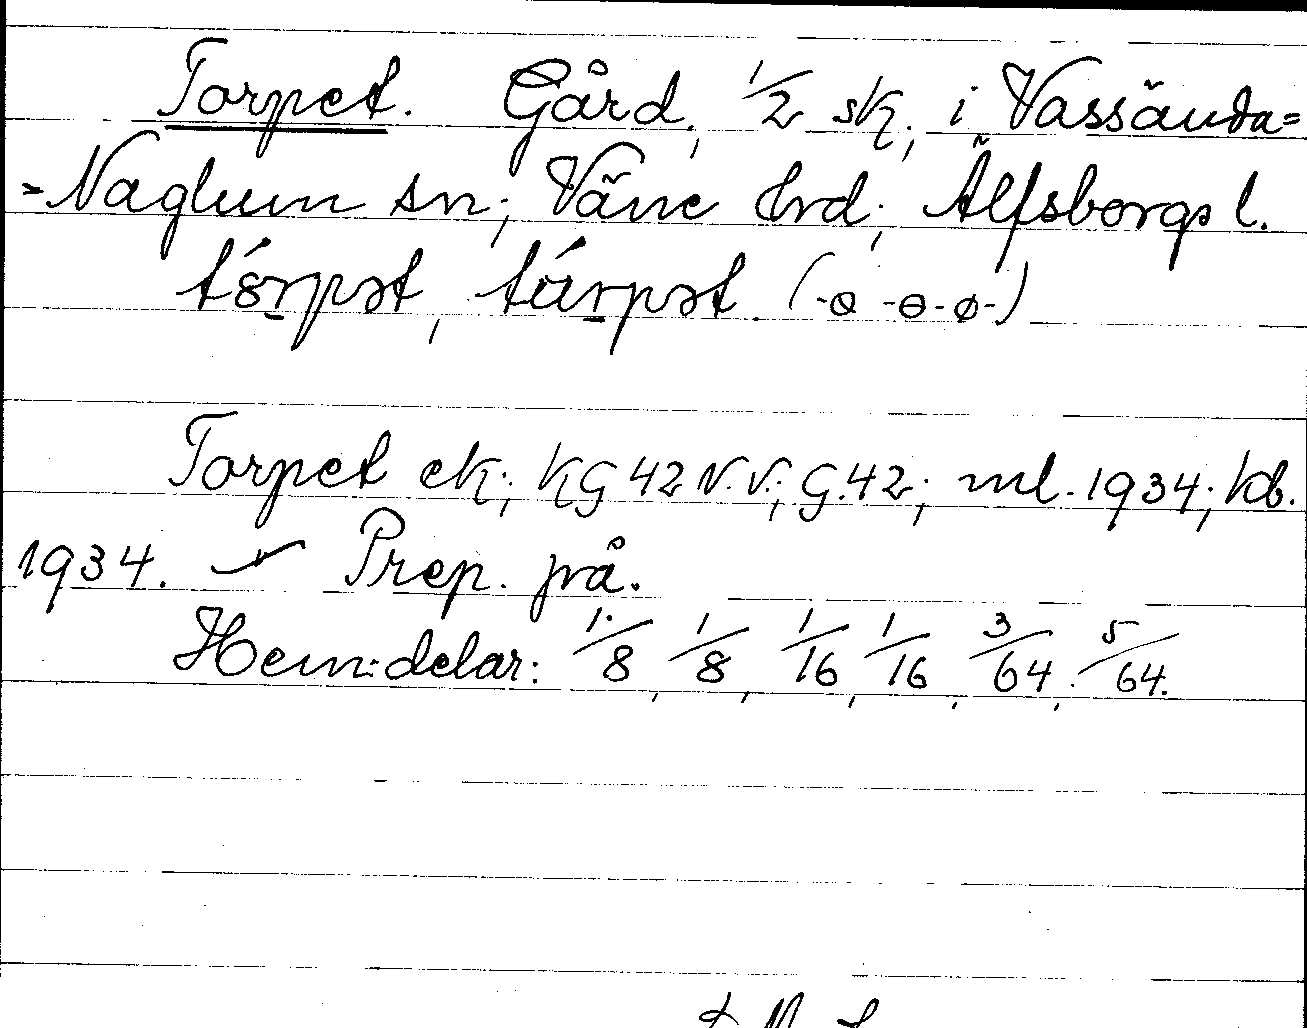 Torpet. Gård, 1/2 sk, i Vassända=
=Naglum sn; Väne hrd; Älfsborgs l.
Torpet ek; KG 42 N.V; G.42; ml. 1934; kb.
1934. Prep. på.
Hem:delar: 1/8, 1/8, 1/16, 1/16, 3/64, 5/64.